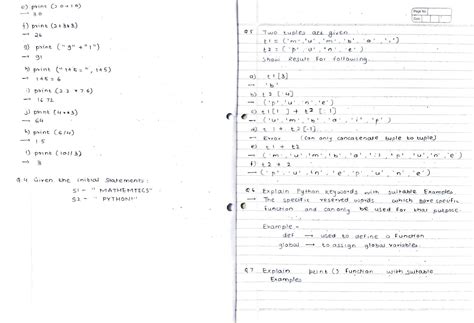 e) print (20+10)
→ 30
f) print (2+3*3)
→ 26
g) print ("9"+"1")
→ 91
h) print ("1+5=", 1+5)
→ 1+5=6
i) print (2.2 * 7.6)
→ 16.72
j) print (4**3)
→ 64
k) print (6/4)
→ 1.5
l) print (10//3)
→ 3
Q.4 Given the initial statements:
S1 = "MATHEMTICS"
S2 = "PYTHON!"
Page No.
Date
Q.5 Two tuples are given
t1 = ('m','u','m','b','a','i')
t2 = ('p','u','n','e')
Show Result for following.
a) t1[3]
→ 'b'
b) t2[:4]
→ ('p','u','n','e')
→ ('u','m','b','a','i','p')
→ Error (can only concatenate tuple to tuple)
e) t1 + t2
→ ('m','u','m','b','a','i','p','u','n','e')
f) t2 * 2
→ ('p','u','n','e','p','u','n','e')
Q.6 Explain Python keywords with suitable Examples
→ The specific reserved words which have specific
function and can only be used for that purpose.
Example -
def → used to define a function
global → to assign global variables.
Q.7 Explain print() function with suitable
Examples